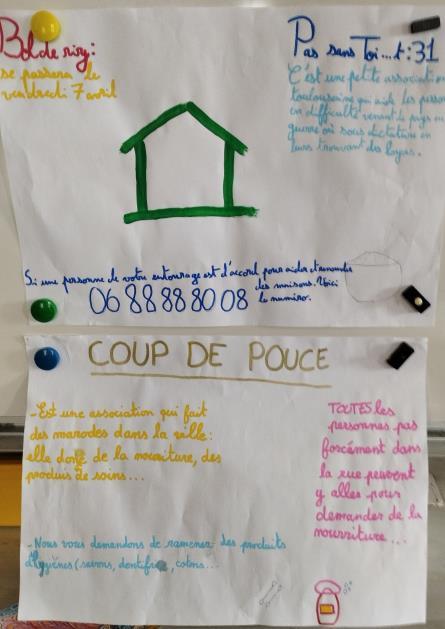 Bol de riz:
se passera le
vendredi 7 avril
Pas sans Toi...t:31
C'est une petite association
toulousaine qui aide les person
en difficulté venant de pays en
guerre où sous dictature en
leurs trouvant des loyas.
Si une personne de votre entourage est d'accord pour aider et
des maisons. Voici
le numero.
06 88 88 80 08
COUP DE POUCE
-Est une association qui fait
des marodes dans la ville:
elle done de la nouriture, des
produits de soins...
TOUTES les
personnes pas
forcément dans
la rue peuvent
y alles pour
demander de la
nourriture...
-Nous vous demandons de ramener des produits
d'hygiènes (savons, dentifrice, cotons...